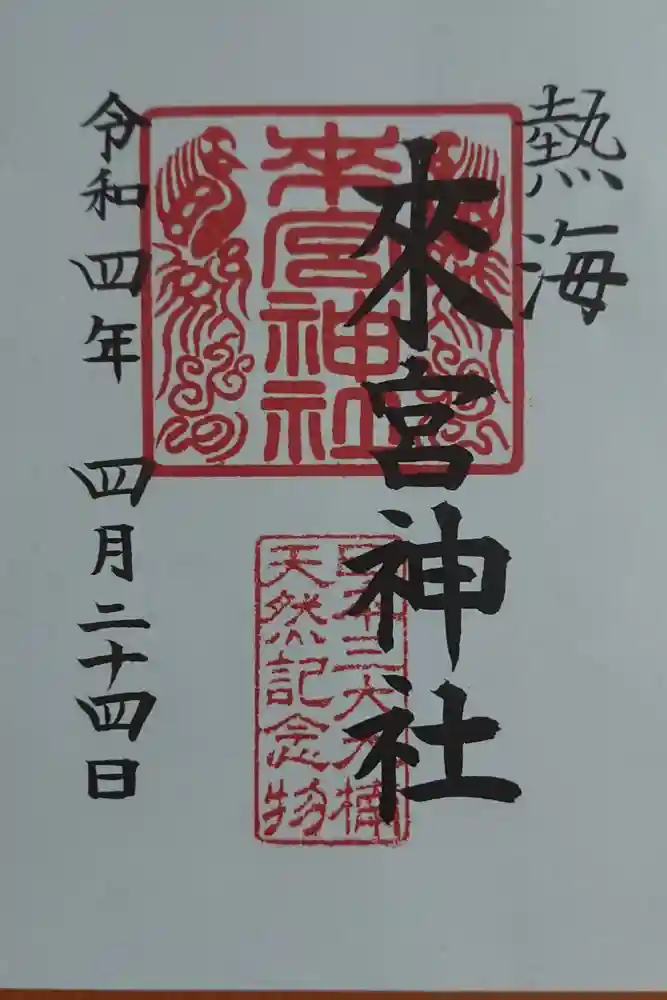 熱海
來宮神社
來宮神社
日本三大大楠
天然記念物
令和四年 四月二十四日